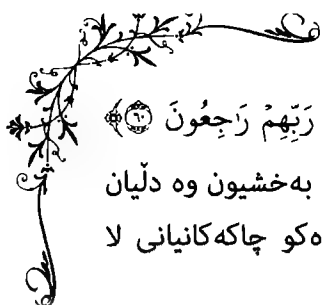 رَبِّهِمْ رَاجِعُونَ ﴿٦٠﴾
بەخشیون وە دڵیان
ەکو چاکەکانیانی لا